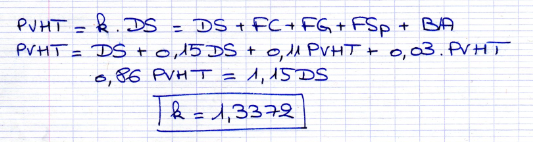 PVHT = k . DS = DS + FC + FG + FSp + B/A
PVHT = DS + 0,15 DS + 0,11 PVHT + 0,03 . PVHT
0,86 PVHT = 1,15 DS
k = 1,3372